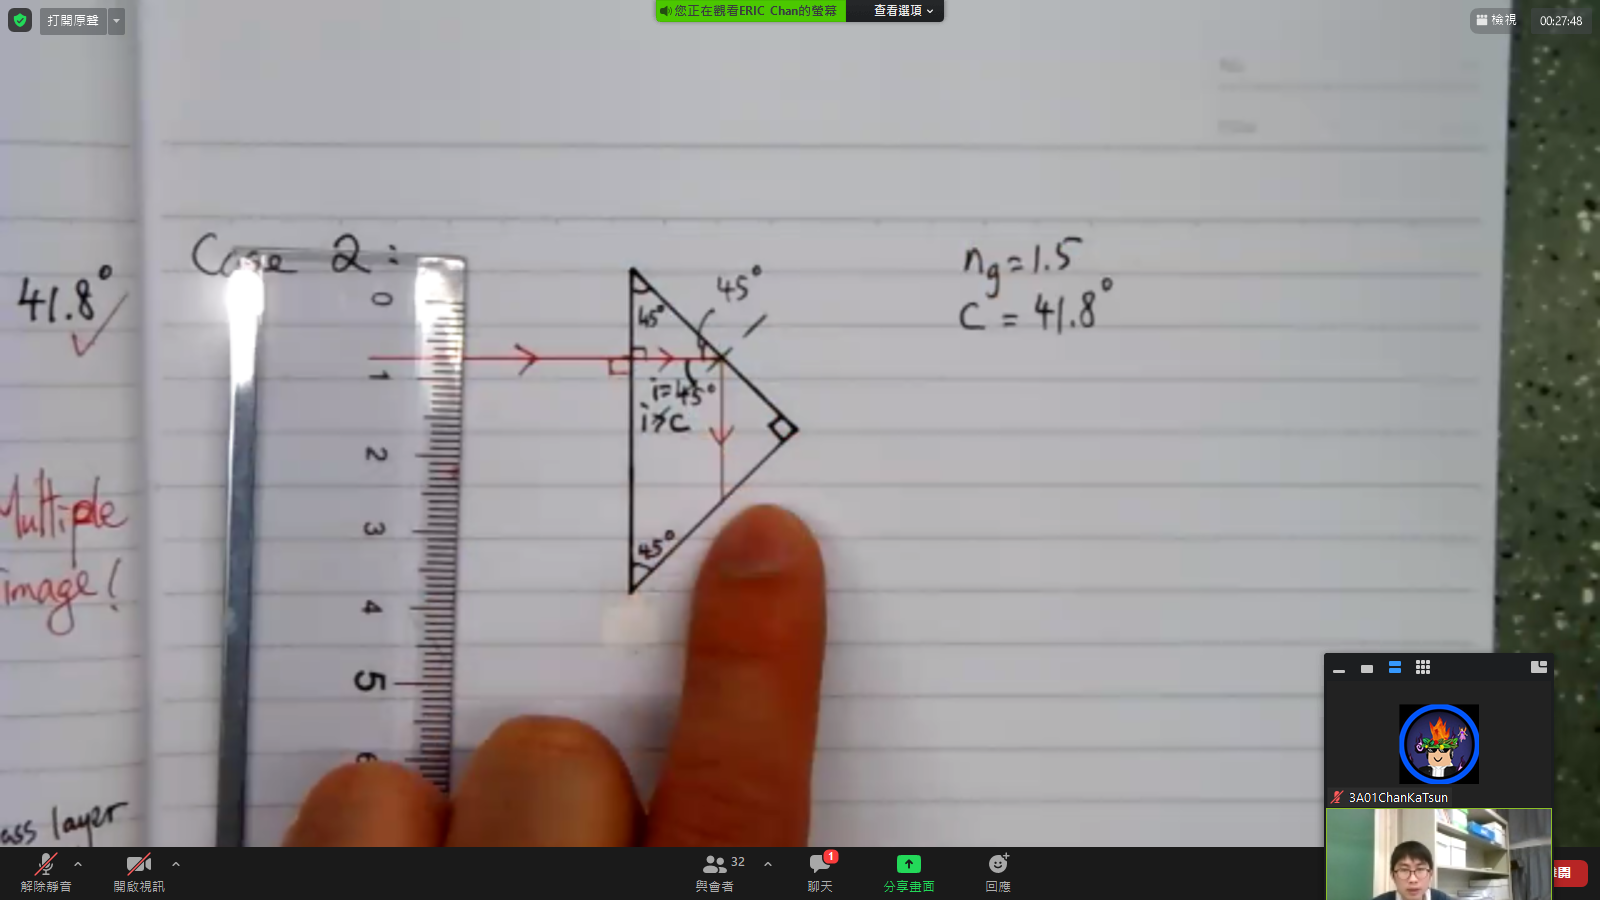 打開原聲
您正在觀看ERIC Chan的螢幕
查看選項
檢視
00:27:48
41.8°
Multiple
image!
ass layer
Case 2:
0
1
2
3
4
5
6
45°
45°
i=45°
i>c
45°
ng=1.5
c = 41.8°
3A01ChanKaTsun
解除靜音
開啟視訊
32
與會者
1
聊天
分享畫面
回應
離開